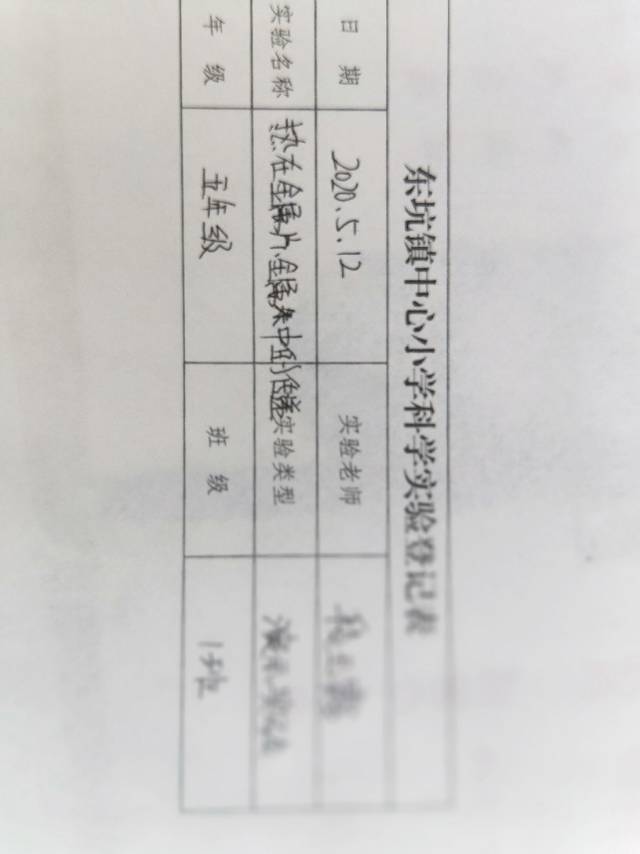 东坑镇中心小学科学实验登记表
日期 2020.5.12 实验老师
实验名称 热在金属片、金属条中的传递 实验类型
年级 五年级 班级 1班